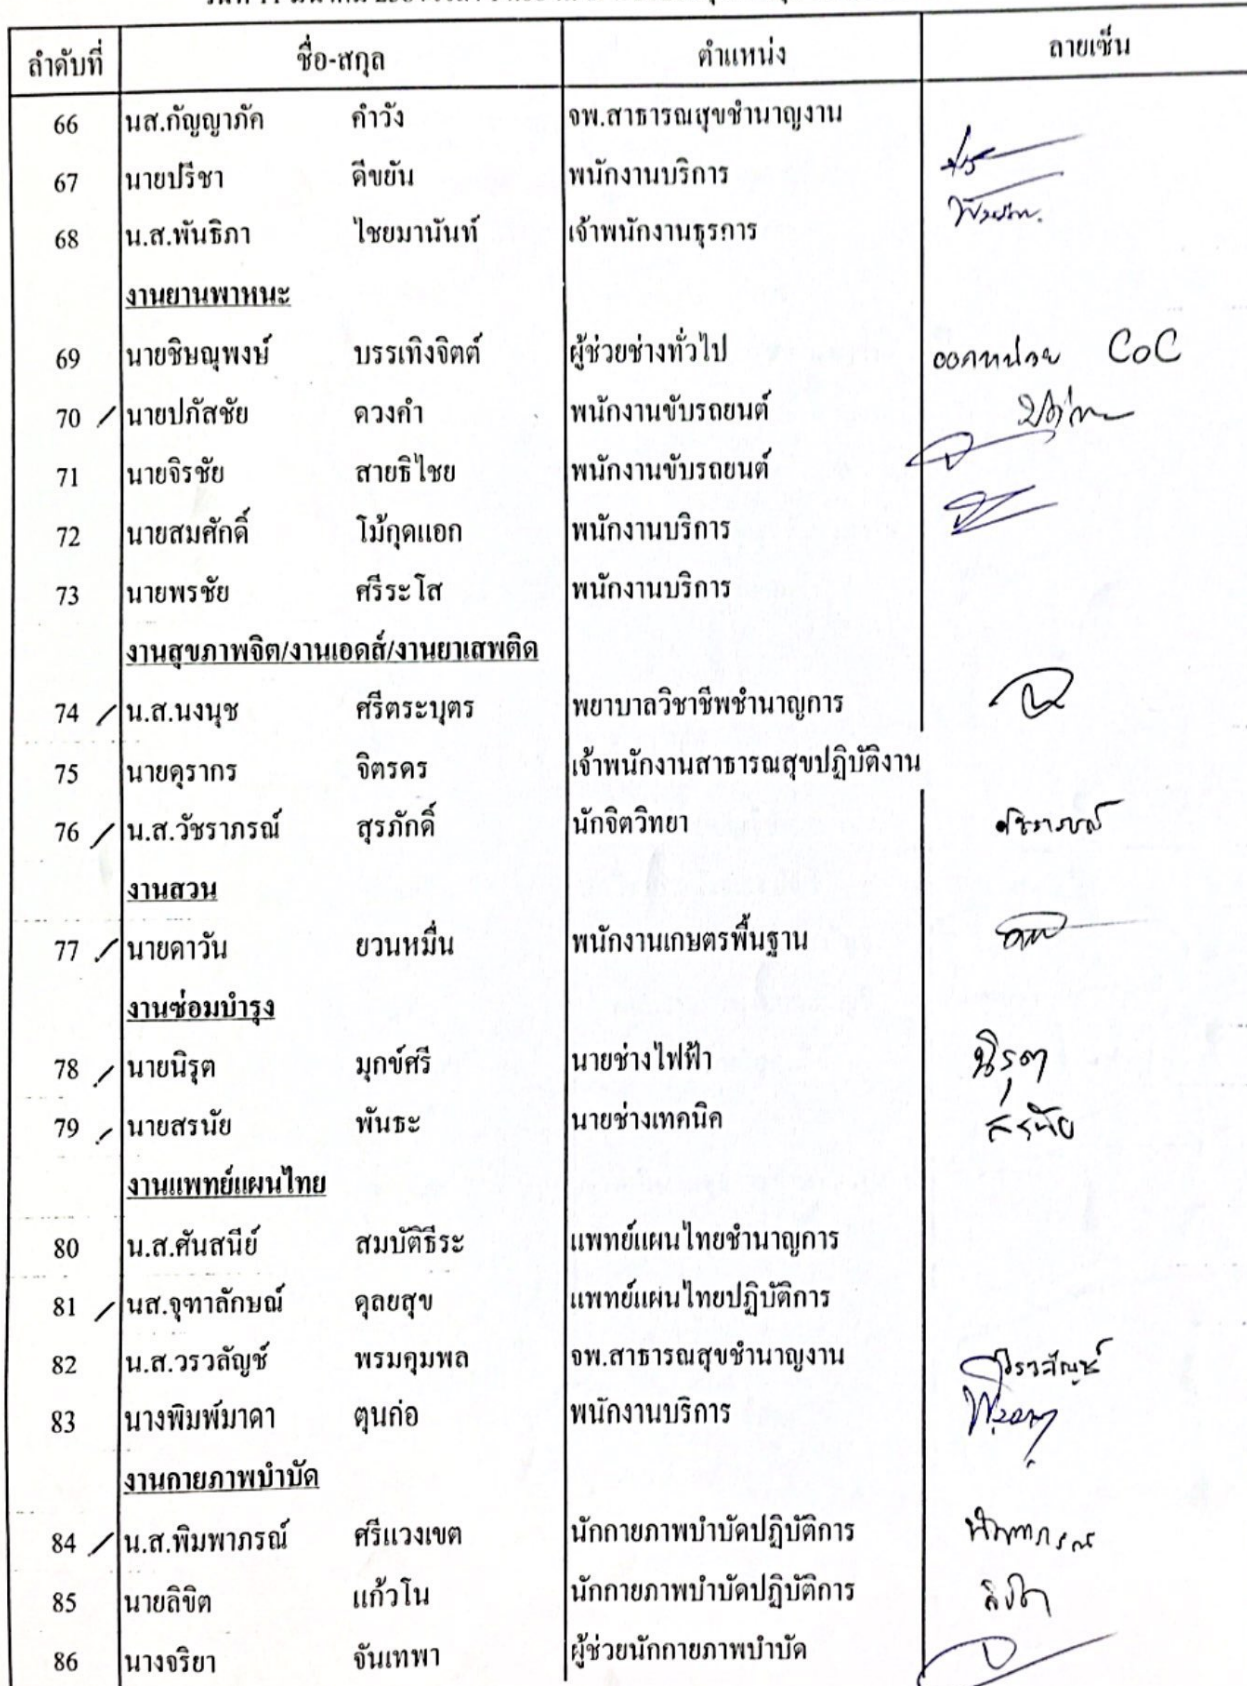 ลำดับที่ ชื่อ-สกุล ตำแหน่ง ลายเซ็น
66 นส.กัญญาภัค คำวัง จพ.สาธารณสุขชำนาญงาน
67 นายปรีชา ดีขยัน พนักงานบริการ
68 น.ส.พันธิภา ไชยมานันท์ เจ้าพนักงานธุรการ
งานยานพาหนะ
69 นายชิษณุพงษ์ บรรเทิงจิตต์ ผู้ช่วยช่างทั่วไป ออกหน่วย CoC
70 / นายปภัสชัย ดวงคำ พนักงานขับรถยนต์
71 นายจิรชัย สายธิไชย พนักงานขับรถยนต์
72 นายสมศักดิ์ โม้กุดแอก พนักงานบริการ
73 นายพรชัย ศรีระโส พนักงานบริการ
งานสุขภาพจิต/งานเอดส์/งานยาเสพติด
74 / น.ส.นงนุช ศรีตระบุตร พยาบาลวิชาชีพชำนาญการ
75 นายดุรากร จิตรดร เจ้าพนักงานสาธารณสุขปฏิบัติงาน
76 / น.ส.วัชราภรณ์ สุรภักดิ์ นักจิตวิทยา วัชราภรณ์
งานสวน
77 / นายดาวัน ยวนหมื่น พนักงานเกษตรพื้นฐาน
งานซ่อมบำรุง
78 / นายนิรุต มุกข์ศรี นายช่างไฟฟ้า นิรุต
79 / นายสรนัย พันธะ นายช่างเทคนิค สรนัย
งานแพทย์แผนไทย
80 น.ส.ศันสนีย์ สมบัติธีระ แพทย์แผนไทยชำนาญการ
81 / นส.จุฑาลักษณ์ ดุลยสุข แพทย์แผนไทยปฏิบัติการ
82 น.ส.วรวลัญช์ พรมคุมพล จพ.สาธารณสุขชำนาญงาน วรวลัญช์
83 นางพิมพ์มาดา ตุนก่อ พนักงานบริการ
งานกายภาพบำบัด
84 / น.ส.พิมพาภรณ์ ศรีแวงเขต นักกายภาพบำบัดปฏิบัติการ พิมพาภรณ์
85 นายลิขิต แก้วโน นักกายภาพบำบัดปฏิบัติการ ลิขิต
86 นางจริยา จันเทพา ผู้ช่วยนักกายภาพบำบัด